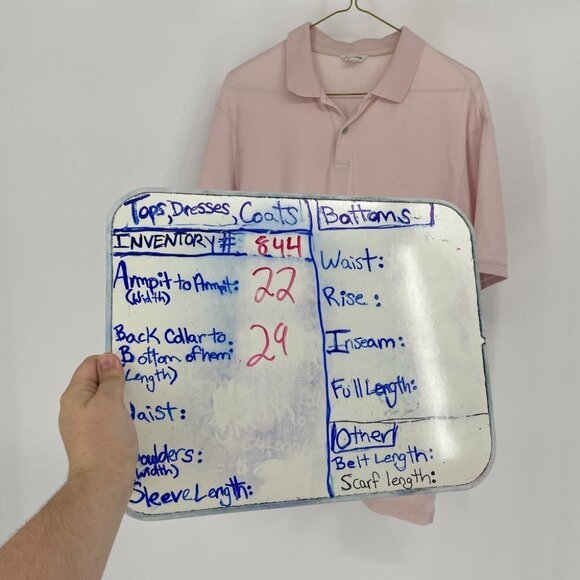 Tops, Dresses, Coats
INVENTORY# 844
Armpit to Armpit: 22
(Width)
Back Collar to
Bottom of hem: 29
(Length)
Waist:
Shoulders:
(Width)
Sleeve Length:
Bottoms
Waist:
Rise:
Inseam:
Full Length:
Other
Belt Length:
Scarf length: